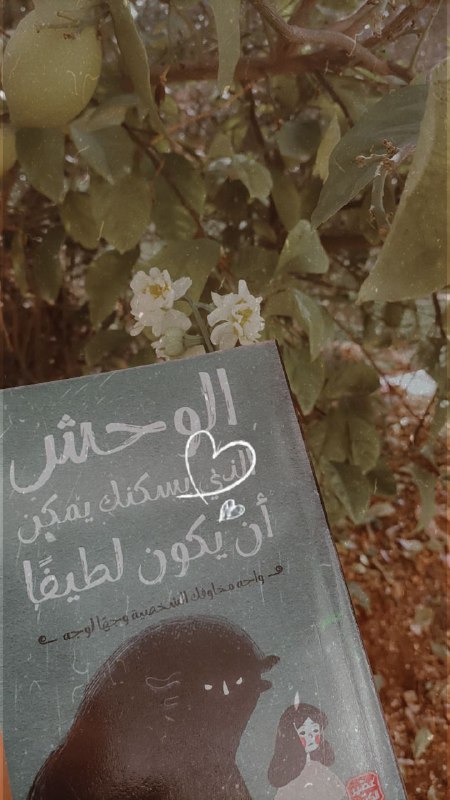 الوحش
الذي يسكنك يمكن
أن يكون لطيفًا
واجه مخاوفك الشخصية وجهًا لوجه
عصير